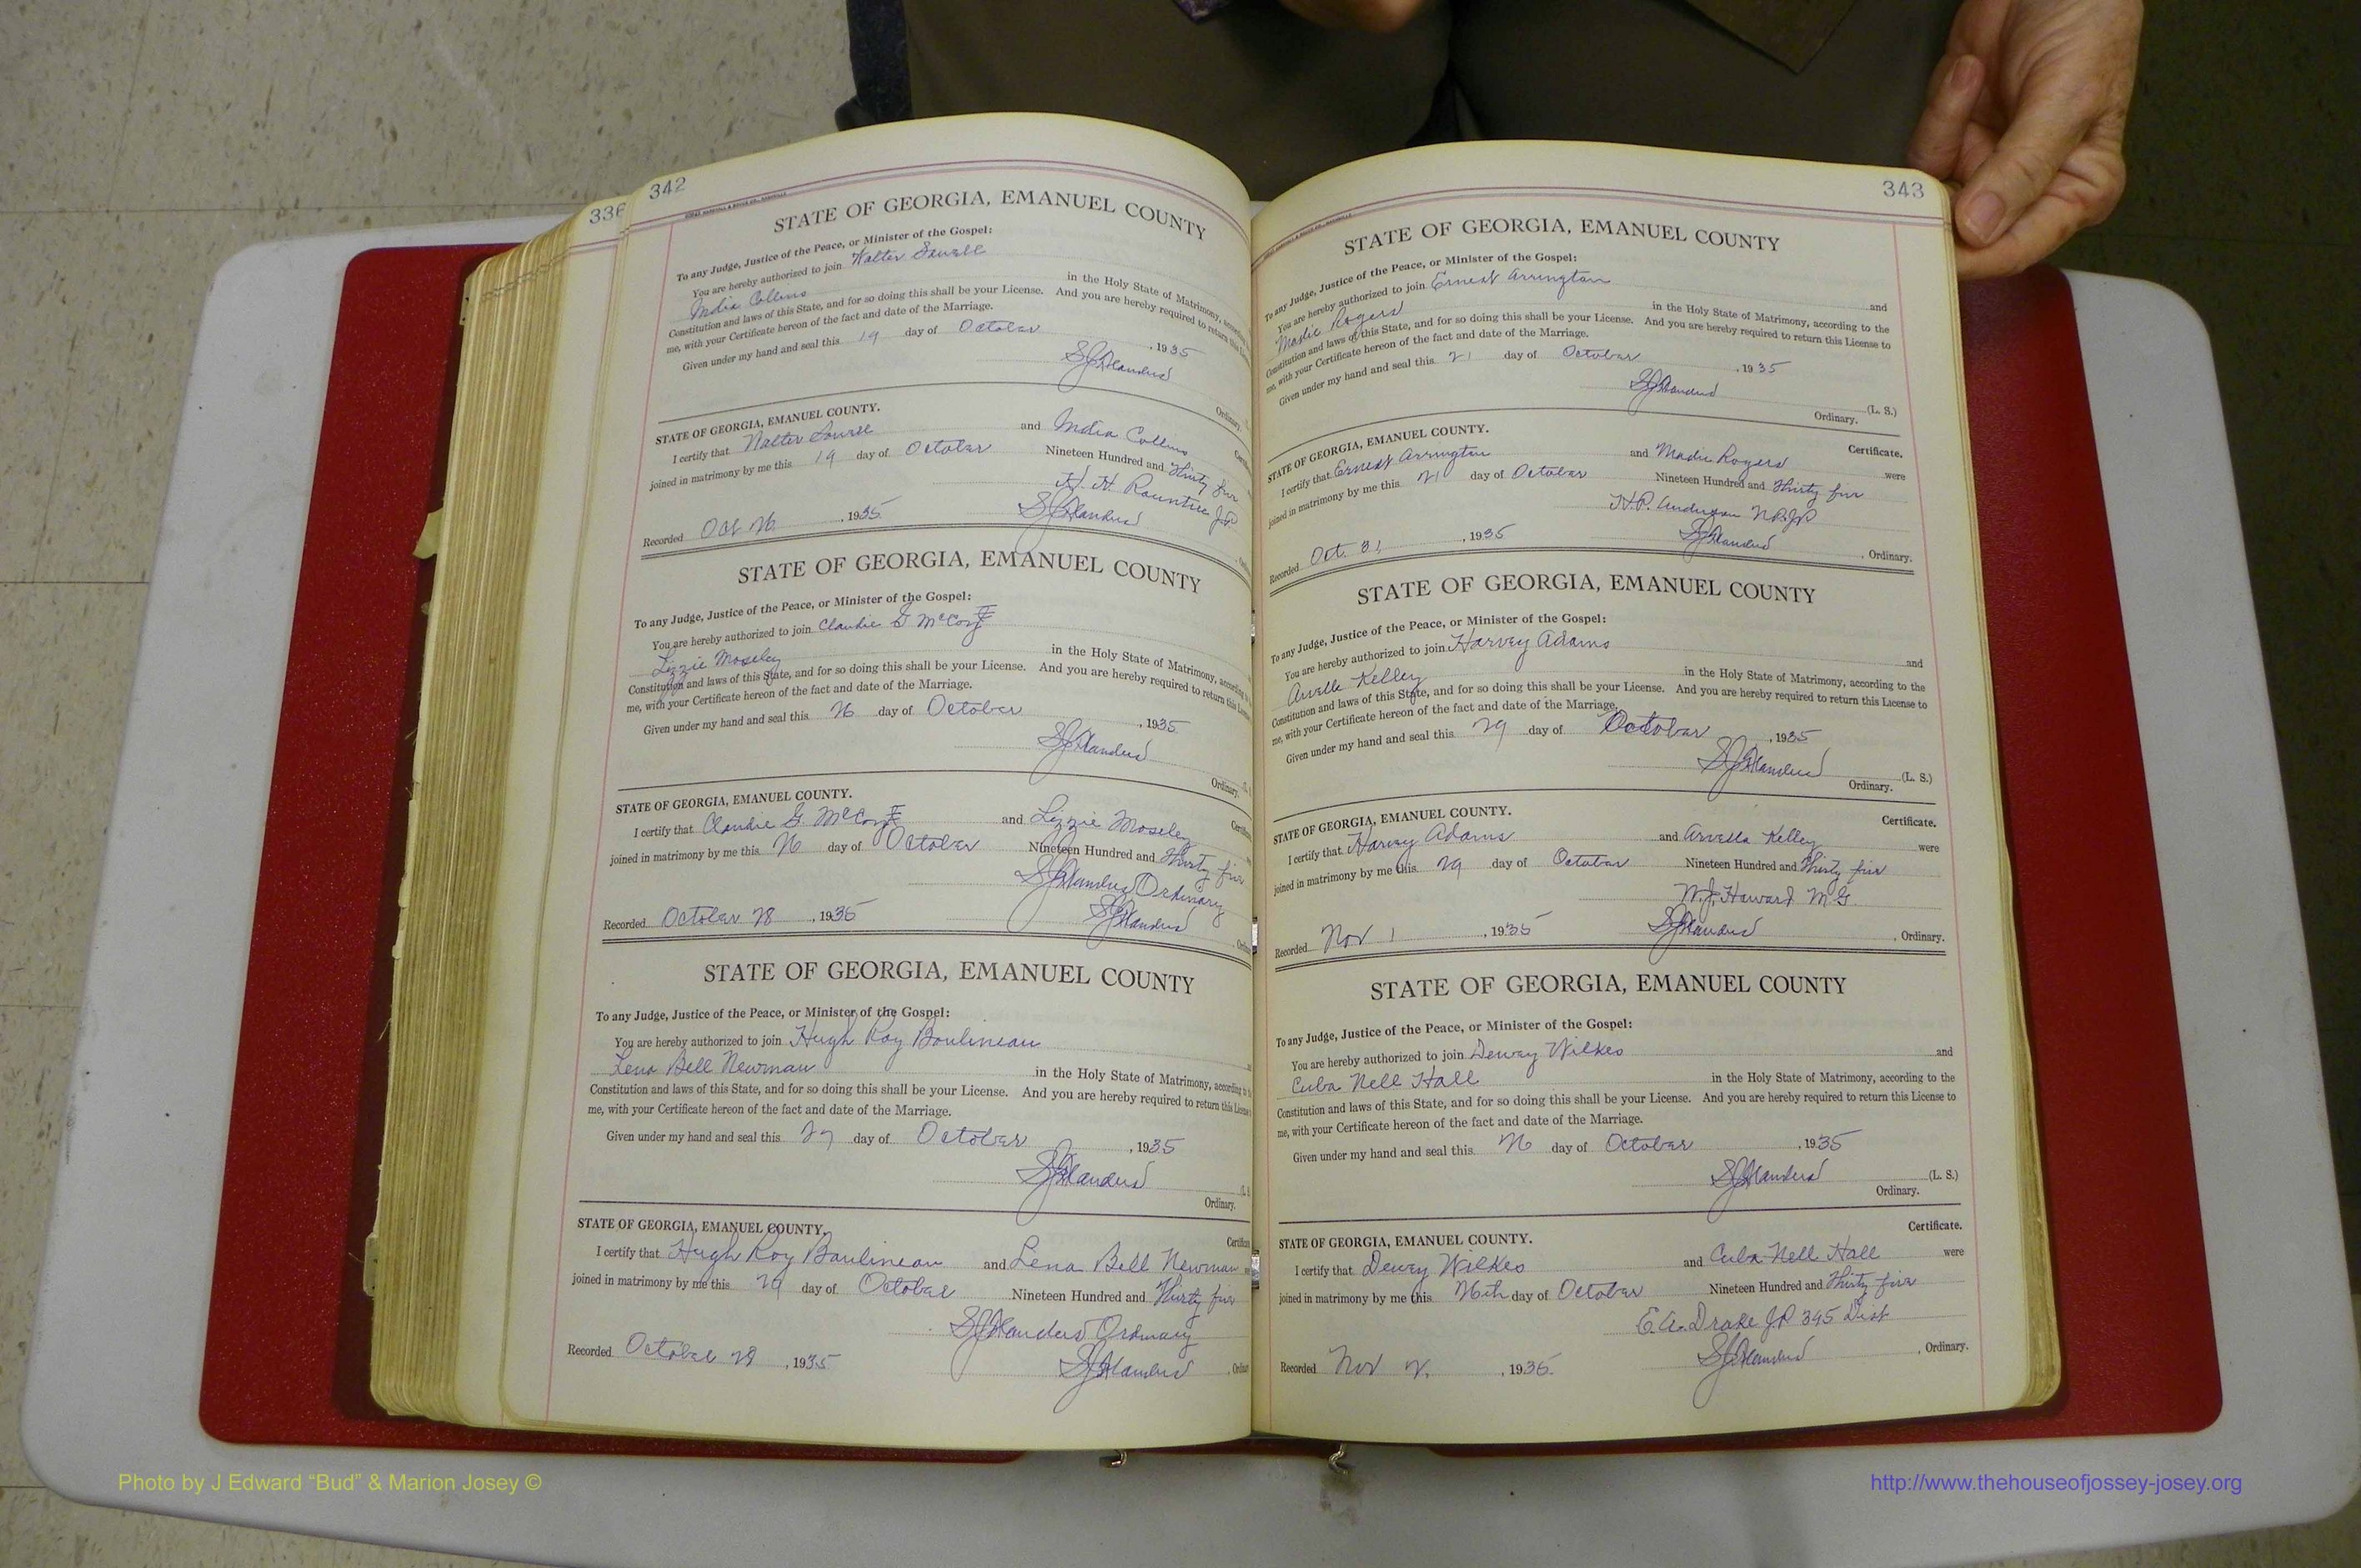 336
342
STATE OF GEORGIA, EMANUEL COUNTY
To any Judge, Justice of the Peace, or Minister of the Gospel:
You are hereby authorized to join Walter
India Collins in the Holy State of Matrimony, according
Constitution and laws of this State, and for so doing this shall be your License. And you are hereby required to return this
me, with your Certificate hereon of the fact and date of the Marriage.
Given under my hand and seal this 19 day of October, 1935
Ordinary.
STATE OF GEORGIA, EMANUEL COUNTY.
I certify that Walter and India Collins
joined in matrimony by me this 19 day of October Nineteen Hundred and Thirty five
H. H. Rountree JP
Recorded Oct 26, 1935
STATE OF GEORGIA, EMANUEL COUNTY
To any Judge, Justice of the Peace, or Minister of the Gospel:
You are hereby authorized to join Claudie G McCoy
Lizzie Moseley in the Holy State of Matrimony, according
Constitution and laws of this State, and for so doing this shall be your License. And you are hereby required to return this License
me, with your Certificate hereon of the fact and date of the Marriage.
Given under my hand and seal this 26 day of October, 1935
Ordinary.
STATE OF GEORGIA, EMANUEL COUNTY.
I certify that Claudie G. McCoy and Lizzie Moseley
joined in matrimony by me this 26 day of October Nineteen Hundred and Thirty five
Ordinary
Recorded October 28, 1935
STATE OF GEORGIA, EMANUEL COUNTY
To any Judge, Justice of the Peace, or Minister of the Gospel:
You are hereby authorized to join Hugh Roy Boulineau
Lena Bell Newman in the Holy State of Matrimony, according to
Constitution and laws of this State, and for so doing this shall be your License. And you are hereby required to return this License
me, with your Certificate hereon of the fact and date of the Marriage.
Given under my hand and seal this 27 day of October, 1935
SJ Flanders
Ordinary.
STATE OF GEORGIA, EMANUEL COUNTY.
I certify that Hugh Roy Boulineau and Lena Bell Newman
joined in matrimony by me this day of October Nineteen Hundred and Thirty five
SJ Flanders Ordinary
Recorded October, 1935 SJ Flanders
343
STATE OF GEORGIA, EMANUEL COUNTY
To any Judge, Justice of the Peace, or Minister of the Gospel:
You are hereby authorized to join Ernest Arrington and
Madie Rogers in the Holy State of Matrimony, according to the
Constitution and laws of this State, and for so doing this shall be your License. And you are hereby required to return this License to
me, with your Certificate hereon of the fact and date of the Marriage.
Given under my hand and seal this 21 day of October, 1935
SJ Flanders (L. S.)
Ordinary.
STATE OF GEORGIA, EMANUEL COUNTY. Certificate.
I certify that Ernest Arrington and Madie Rogers were
joined in matrimony by me this 21 day of October Nineteen Hundred and Thirty five
H.P. Anderson NP&JP
Recorded Oct. 31, 1935 SJ Flanders, Ordinary.
STATE OF GEORGIA, EMANUEL COUNTY
To any Judge, Justice of the Peace, or Minister of the Gospel:
You are hereby authorized to join Harvey Adams and
Kelley in the Holy State of Matrimony, according to the
Constitution and laws of this State, and for so doing this shall be your License. And you are hereby required to return this License to
me, with your Certificate hereon of the fact and date of the Marriage.
Given under my hand and seal this 29 day of October, 1935
SJ Flanders (L. S.)
Ordinary.
STATE OF GEORGIA, EMANUEL COUNTY. Certificate.
I certify that Harvey Adams and Arvella Kelley were
joined in matrimony by me this 29 day of October Nineteen Hundred and Thirty five
W.J. Howard M G
Recorded Nov 1, 1935 SJ Flanders, Ordinary.
STATE OF GEORGIA, EMANUEL COUNTY
To any Judge, Justice of the Peace, or Minister of the Gospel:
You are hereby authorized to join Dewey Wilkes and
Cuba Nell Hall in the Holy State of Matrimony, according to the
Constitution and laws of this State, and for so doing this shall be your License. And you are hereby required to return this License to
me, with your Certificate hereon of the fact and date of the Marriage.
Given under my hand and seal this 26 day of October, 1935
SJ Flanders (L. S.)
Ordinary.
STATE OF GEORGIA, EMANUEL COUNTY. Certificate.
I certify that Dewey Wilkes and Cuba Nell Hall were
joined in matrimony by me this 26th day of October Nineteen Hundred and Thirty five
E.A. Drake JP 395 Dist
Recorded Nov 2, 1935. SJ Flanders, Ordinary.
Photo by J Edward “Bud” & Marion Josey ©
http://www.thehouseofjossey-josey.org